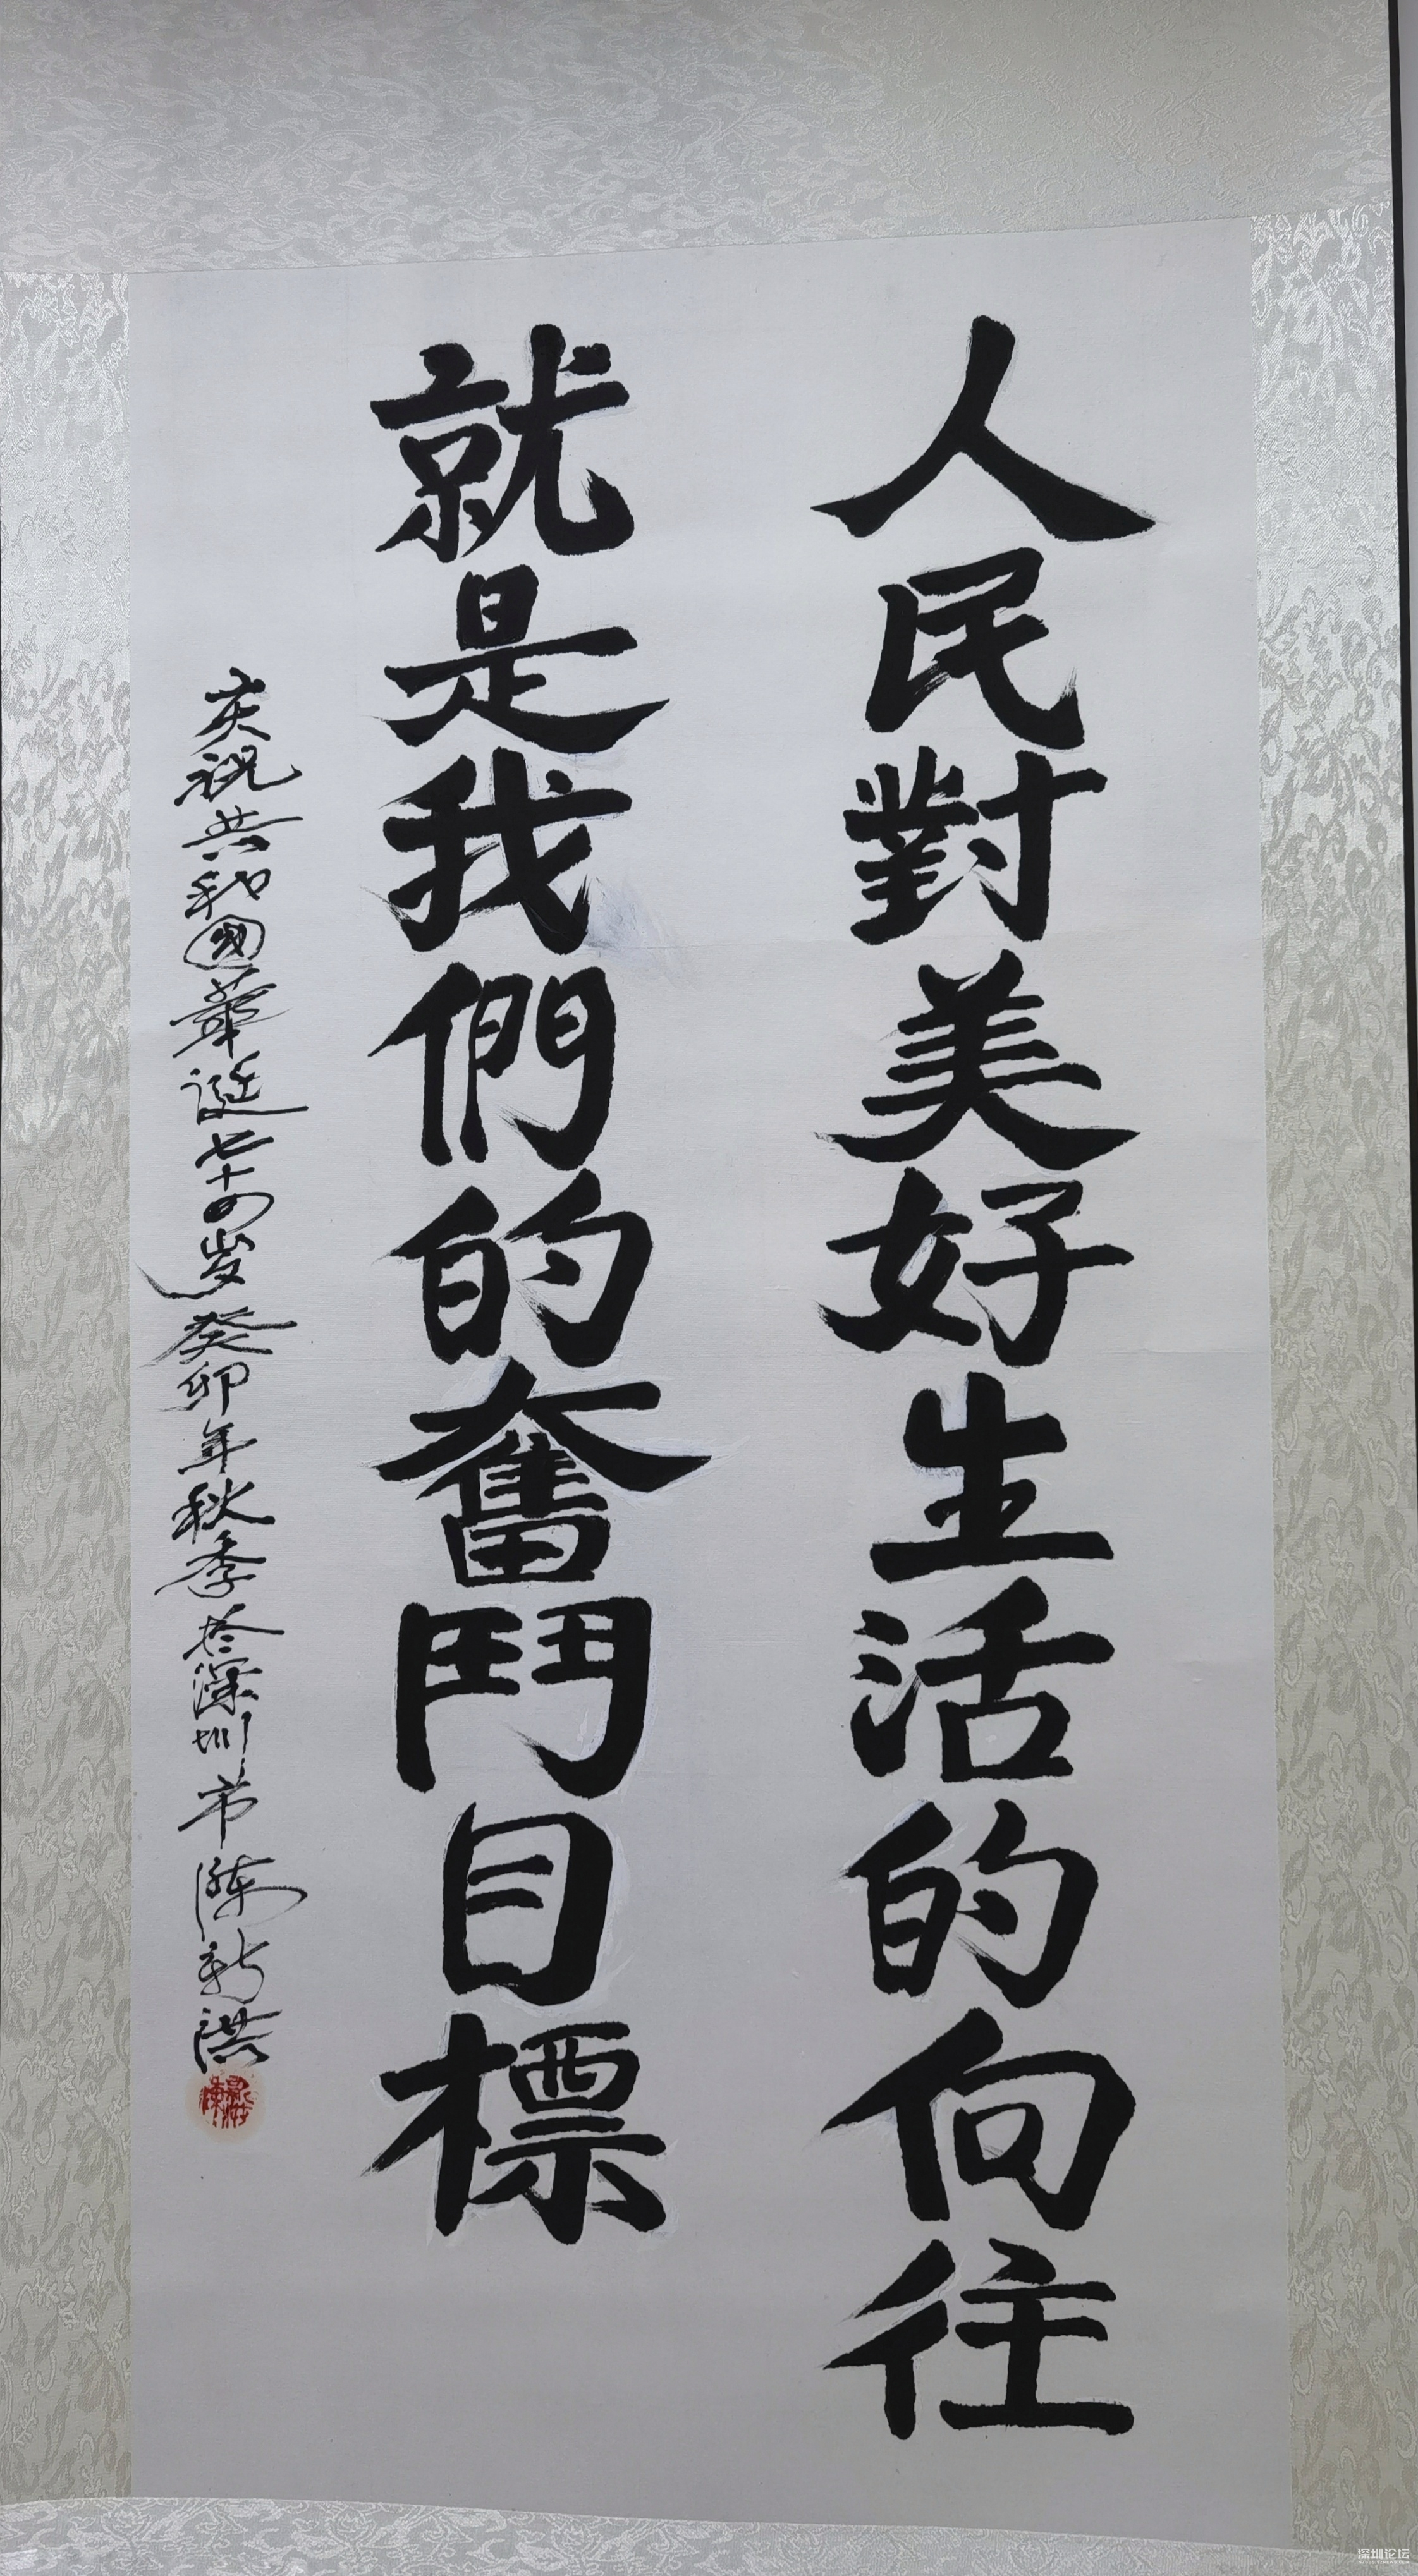 人民對美好生活的向往
就是我們的奮鬥目標
庆祝共和國華诞七十四岁癸卯年秋季於深圳市陈新洪
深圳论坛